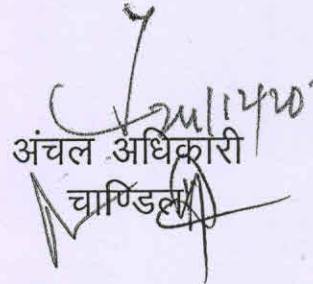 अंचल अधिकारी
चाण्डिल